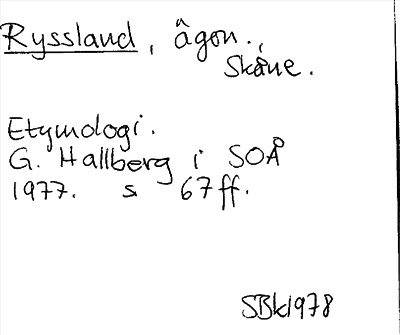 Ryssland, ägon.,
Skåne.
Etymologi.
G. Hallberg i SOÅ
1977. s 67ff.
SBk1978